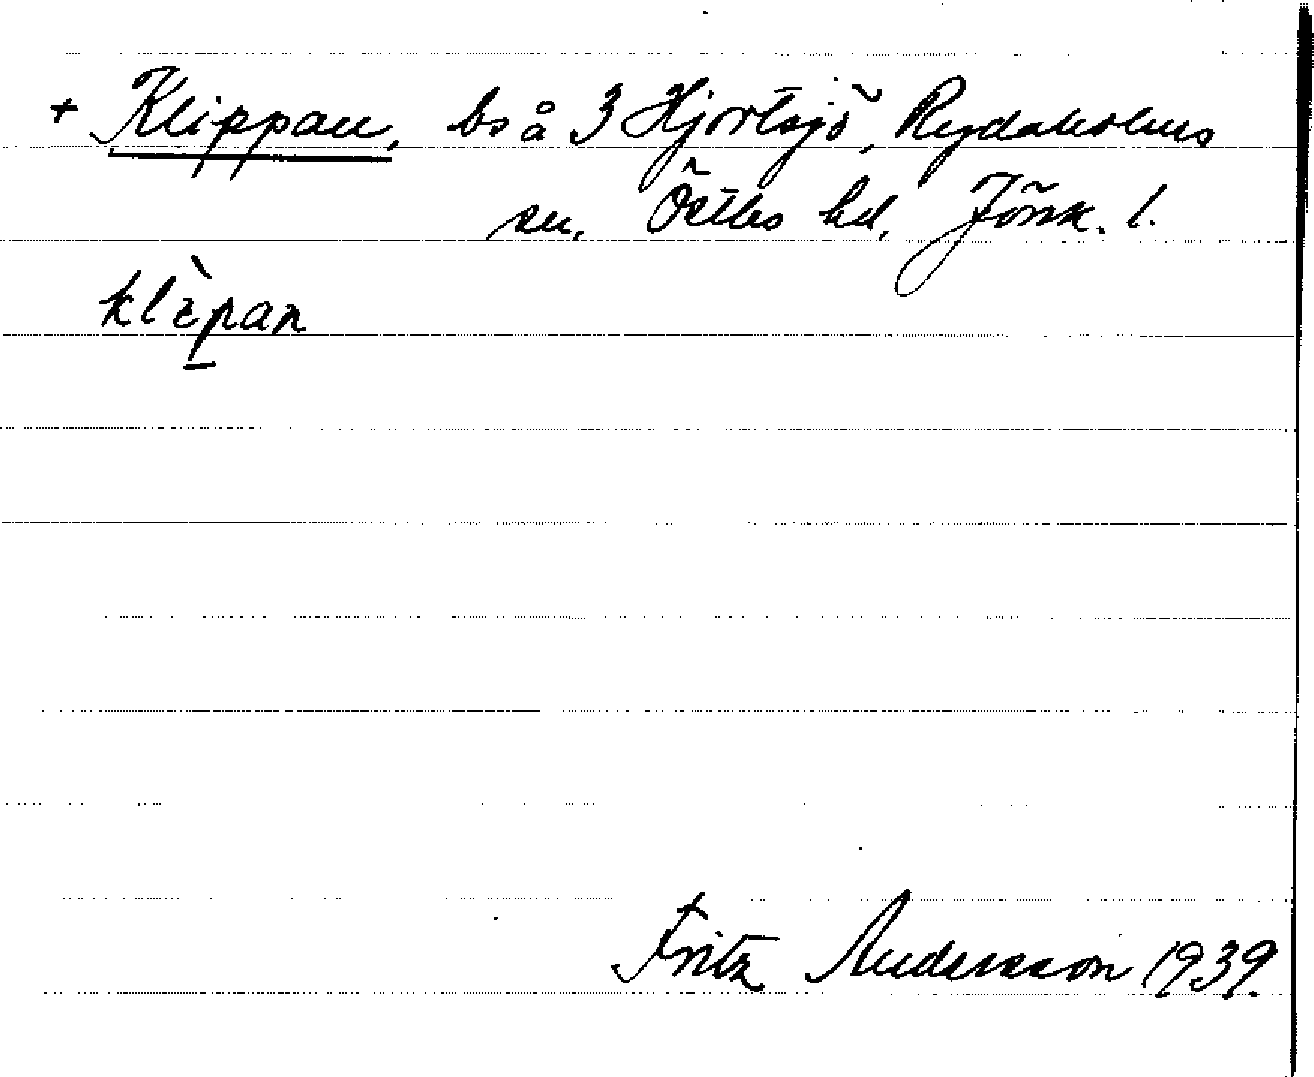 + Klippan, bs å 3 Hjortsjö, Rydaholms
sn, Östbo hd, Jönk. l.
klèpan
Fritz Andersson 1939.